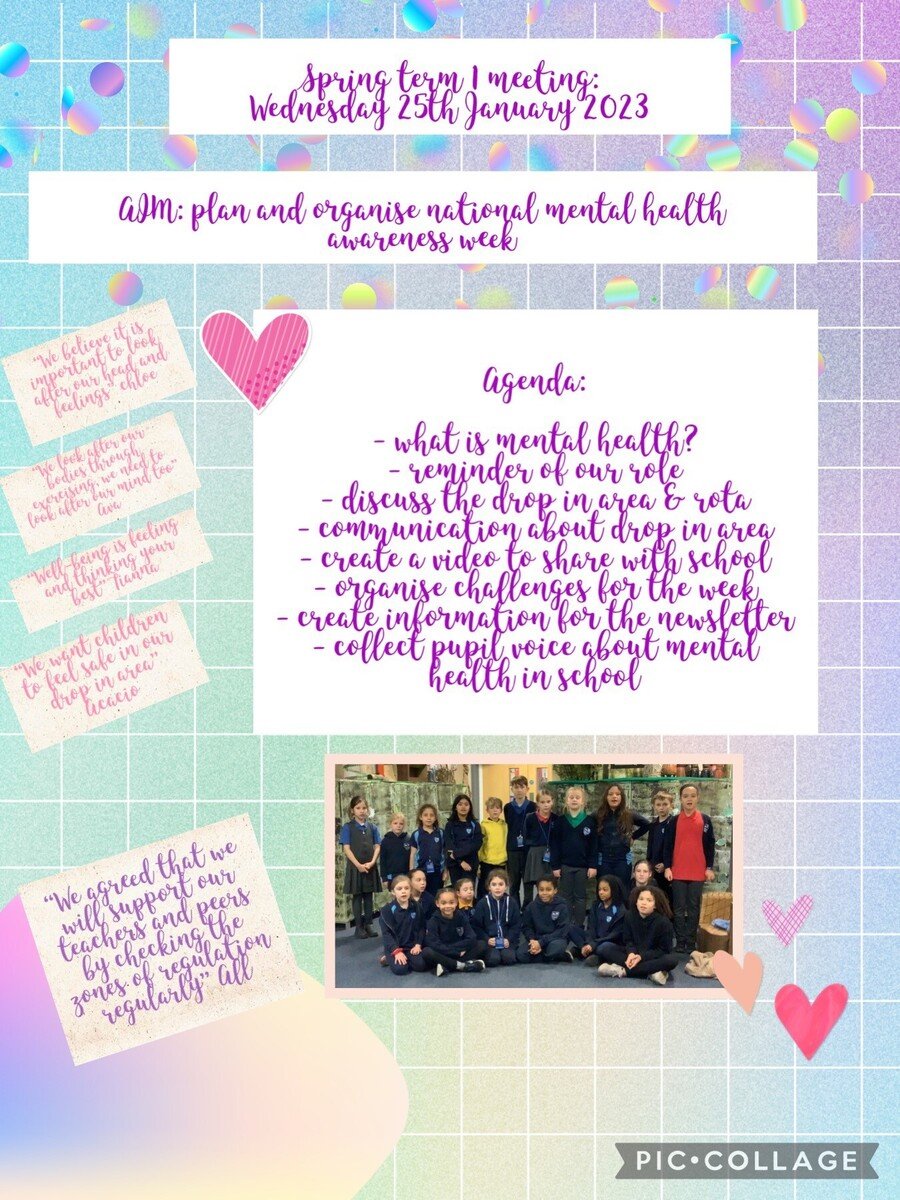 Spring term 1 meeting:
Wednesday 25th January 2023
AIM: plan and organise national mental health
awareness week
"We believe it is
important to look
after our head and
feelings" chloe
"We look after our
bodies through
exercising, we need to
look after our mind too"
Ava
"Well-being is feeling
and thinking your
best" Tianna
"We want children
to feel safe in our
drop in area"
Acacio
Agenda:
- what is mental health?
- reminder of our role
- discuss the drop in area & rota
- communication about drop in area
- create a video to share with school
- organise challenges for the week
- create information for the newsletter
- collect pupil voice about mental
health in school
"We agreed that we
will support our
teachers and peers
by checking the
zones of regulation
regularly" All
PIC•COLLAGE